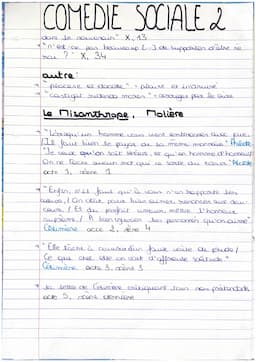 COMEDIE SOCIALE 2
dans le souverain" X, 13
"n'est-ce pas beaucoup [...] de supposition d'être ne
X, 34
autre:
"placere et docere" = plaire et instruire
"castigat ridendo mores" = corriger par le rire
Le Misanthrope, Molière
"Lorsqu'un homme vous vient embrasser avec joie,
Il faut bien le payer de la même monnaie" Philinte
"Je veux qu'on soit sincère, et qu'en homme d'honneur
On ne lâche aucun mot qui ne parte du cœur" Alceste
acte 1, scène 1
"Enfin, s'il faut qu'à vous s'en rapporte les
cœurs, / On doit, pour bien aimer, renoncer aux dou-
ceurs / Et du parfait amour mettre l'honneur
suprême / A bien injurier les personnes qu'on aime"
Célimène acte 2, scène 4
"Elle tâche à couvrir d'un faux voile de prude /
Ce que chez elle on voit d'affreuse solitude"
Célimène acte 3, scène 3
la lettre de Célimène critiquant tous ses prétendants
acte 5, scène dernière